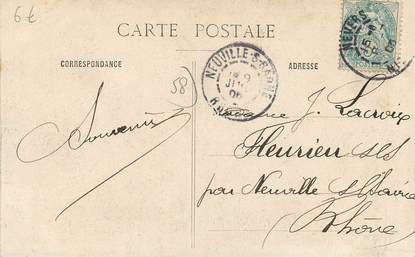 6 €
CARTE POSTALE
CORRESPONDANCE
ADRESSE
58
NEUVILLE-S-SAONE
NEVERS
Souvenir
J. Lacroix
Fleurieu s/s
par Neuville s/Saône
Rhône